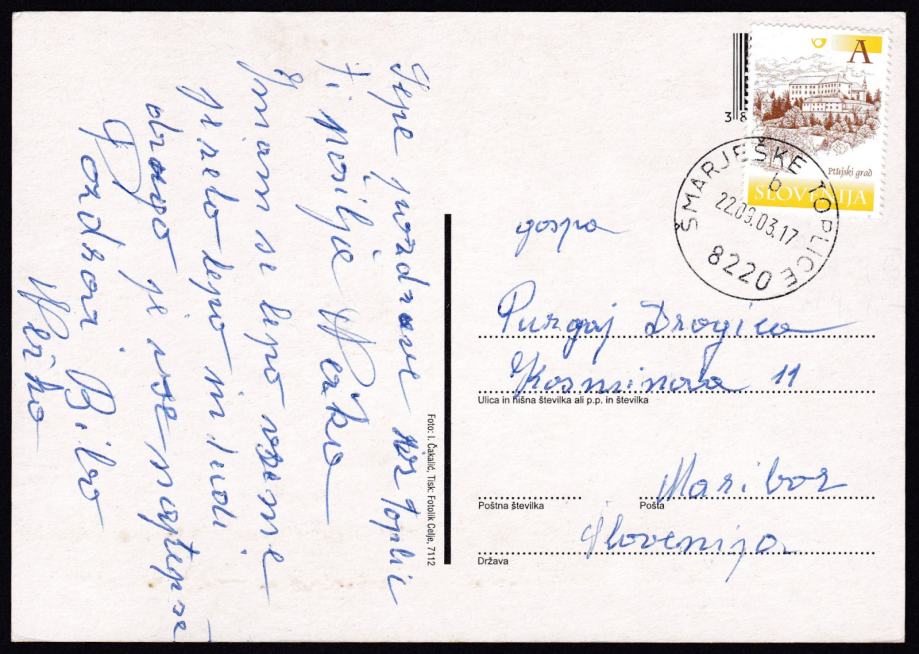 Lepe pozdrave iz Toplic
ti pošilja
Imam se lepo vreme
je zelo lepo in tudi
drago je vse najlepše
Pozdrav Bibo
Foto: I. Čakalić, Tisk: Fotolik Celje, 7112
3 8
A
Ptujski grad
SLOVENIJA
ŠMARJEŠKE TOPLICE
b
22.09.03.17
8220
gospa
Purgaj Dragica
Kosminova 11
Ulica in hišna številka ali p.p. in številka
Maribor
Poštna številka Pošta
Slovenija
Država